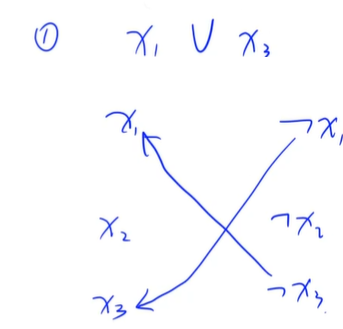 ① x₁ ∨ x₃
x₁ ¬x₁
x₂ ¬x₂
x₃ ¬x₃